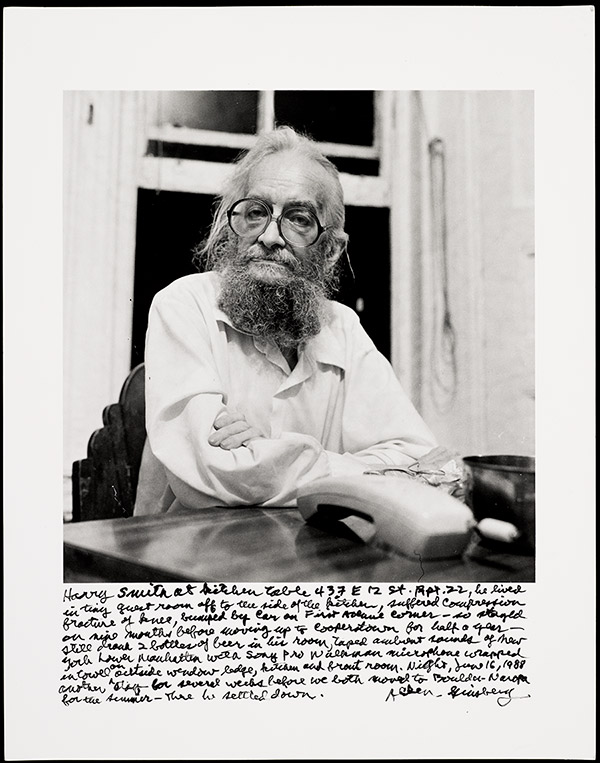 Harry Smith at kitchen table 437 E 12 St. Apt. 22, he lived
in tiny guest room off to the side of the kitchen, suffered compression
fracture of knee, bumped by car on First Avenue corner — so stayed
on nine months before moving up to Cooperstown for half a year —
still drank 2 bottles of beer in his room, taped ambient sounds of New
York Lower Manhattan with Sony Pro Walkman microphone wrapped
in towel on outside window ledge, kitchen and front room. Night, June 16, 1988
another "stay" for several weeks before we both moved to Boulder-Naropa
for the summer — There he settled down. Allen Ginsberg